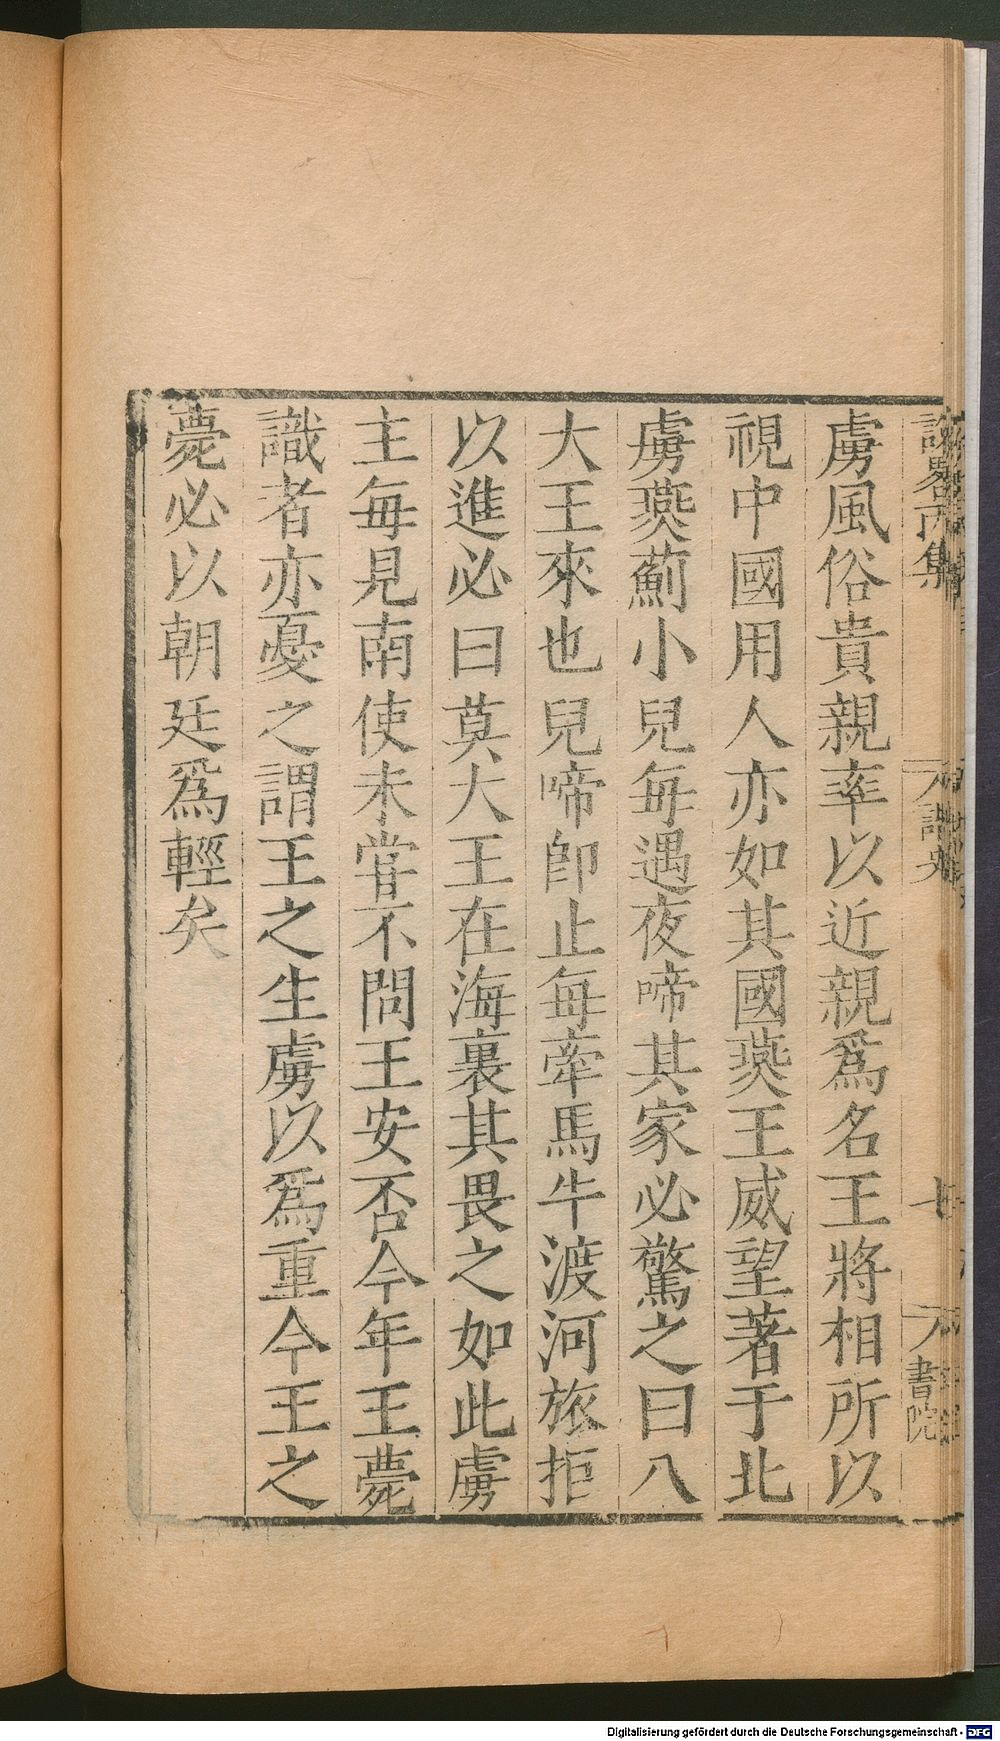 虜風俗貴親率以近親爲名王將相所以
視中國用人亦如其國燕王威望著于北
虜燕薊小兒每遇夜啼其家必驚之曰八
大王來也兒啼即止每牽馬牛渡河旅拒
以進必曰莫大王在海裏其畏之如此虜
主每見南使未嘗不問王安否今年王薨
識者亦憂之謂王之生虜以爲重今王之
薨必以朝廷爲輕矣
七
書院
Digitalisierung gefördert durch die Deutsche Forschungsgemeinschaft - DFG